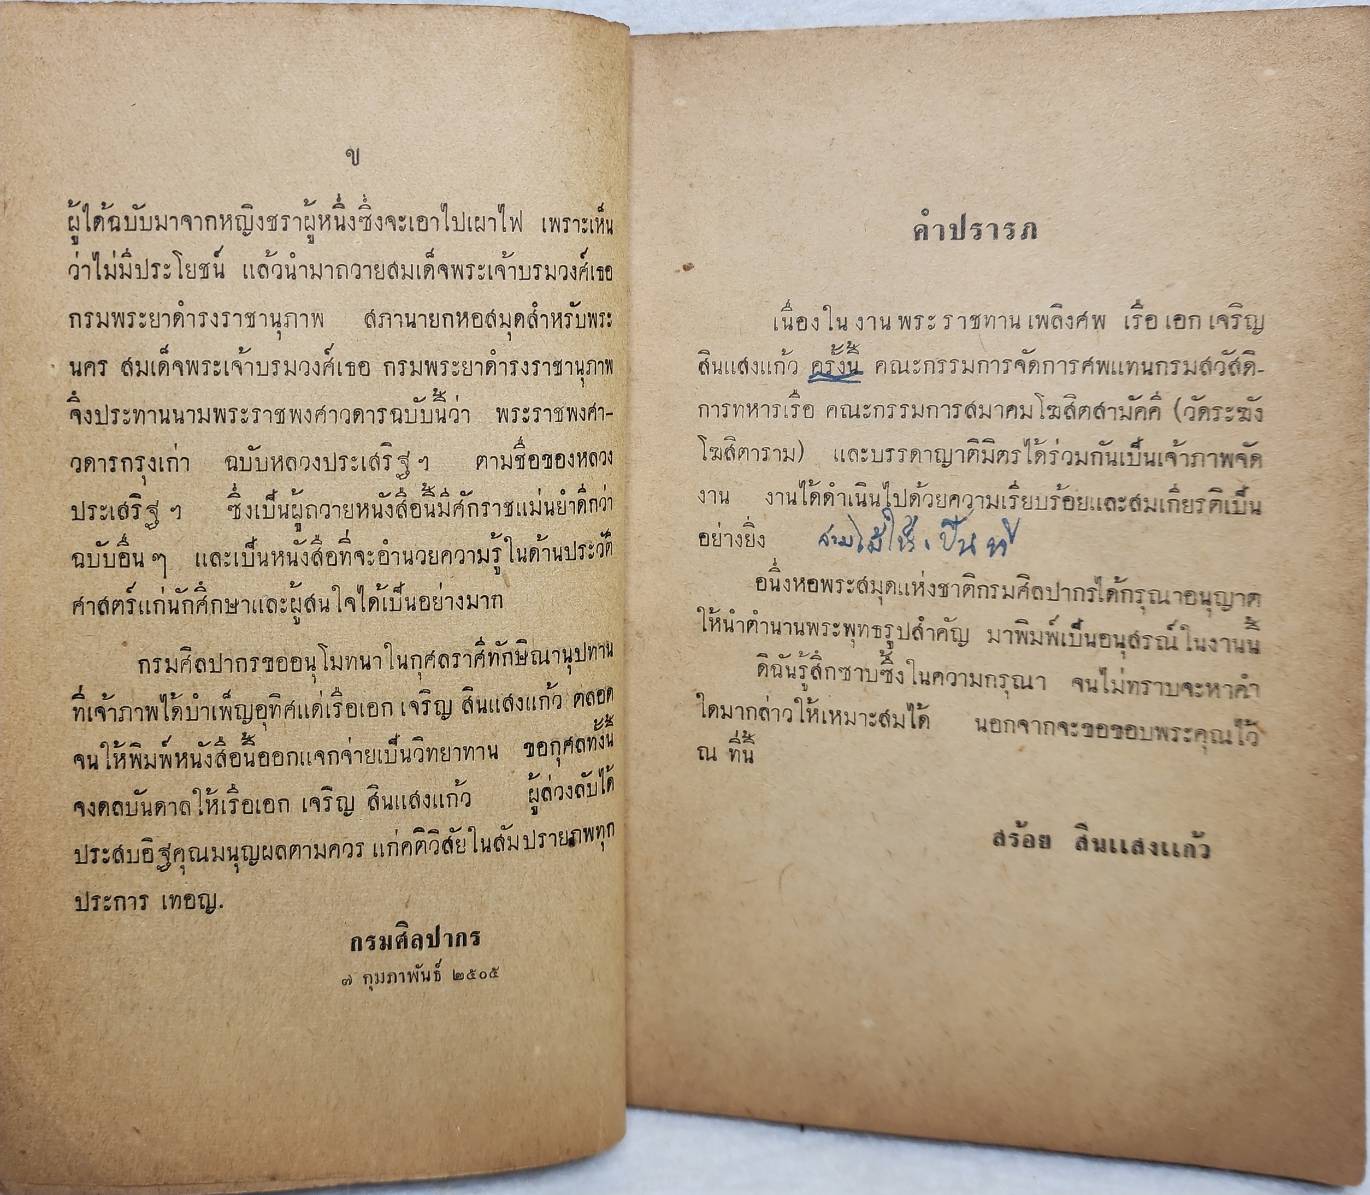 ข
ผู้ได้ฉบับมาจากหญิงชราผู้หนึ่งซึ่งจะเอาไปเผาไฟ เพราะเห็น
ว่าไม่มีประโยชน์ แล้วนำมาถวายสมเด็จพระเจ้าบรมวงศ์เธอ
กรมพระยาดำรงราชานุภาพ สภานายกหอสมุดสำหรับพระ
นคร สมเด็จพระเจ้าบรมวงศ์เธอ กรมพระยาดำรงราชานุภาพ
จึงประทานนามพระราชพงศาวดารฉบับนี้ว่า พระราชพงศา-
วดารกรุงเก่า ฉบับหลวงประเสริฐ ฯ ตามชื่อของหลวง
ประเสริฐ ฯ ซึ่งเป็นผู้ถวายหนังสือนี้มีศักราชแม่นยำดีกว่า
ฉบับอื่น ๆ และเป็นหนังสือที่จะอำนวยความรู้ในด้านประวัติ
ศาสตร์แก่นักศึกษาและผู้สนใจได้เป็นอย่างมาก
กรมศิลปากรขออนุโมทนาในกุศลราศีทักษิณานุปทาน
ที่เจ้าภาพได้บำเพ็ญอุทิศแด่เรือเอก เจริญ สินแสงแก้ว ตลอด
จนให้พิมพ์หนังสือนี้ออกแจกจ่ายเป็นวิทยาทาน ขอกุศลทั้งนี้
จงดลบันดาลให้เรือเอก เจริญ สินแสงแก้ว ผู้ล่วงลับได้
ประสบอิฐคุณมนุญผลตามควร แก่คติวิสัยในสัมปรายภพทุก
ประการ เทอญ.
กรมศิลปากร
๗ กุมภาพันธ์ ๒๕๐๕
คำปรารภ
เนื่องในงานพระราชทานเพลิงศพ เรือเอกเจริญ
สินแสงแก้ว ครั้งนี้ คณะกรรมการจัดการศพแทนกรมสวัสดิ-
การทหารเรือ คณะกรรมการสมาคมโฆสิตสามัคคี (วัดระฆัง
โฆสิตาราม) และบรรดาญาติมิตรได้ร่วมกันเป็นเจ้าภาพจัด
งาน งานได้ดำเนินไปด้วยความเรียบร้อยและสมเกียรติเป็น
อย่างยิ่ง
อนึ่งหอพระสมุดแห่งชาติกรมศิลปากรได้กรุณาอนุญาต
ให้นำตำนานพระพุทธรูปสำคัญ มาพิมพ์เป็นอนุสรณ์ในงานนี้
ดิฉันรู้สึกซาบซึ้งในความกรุณา จนไม่ทราบจะหาคำ
ใดมากล่าวให้เหมาะสมได้ นอกจากจะขอขอบพระคุณไว้
ณ ที่นี้
สร้อย สินแสงแก้ว